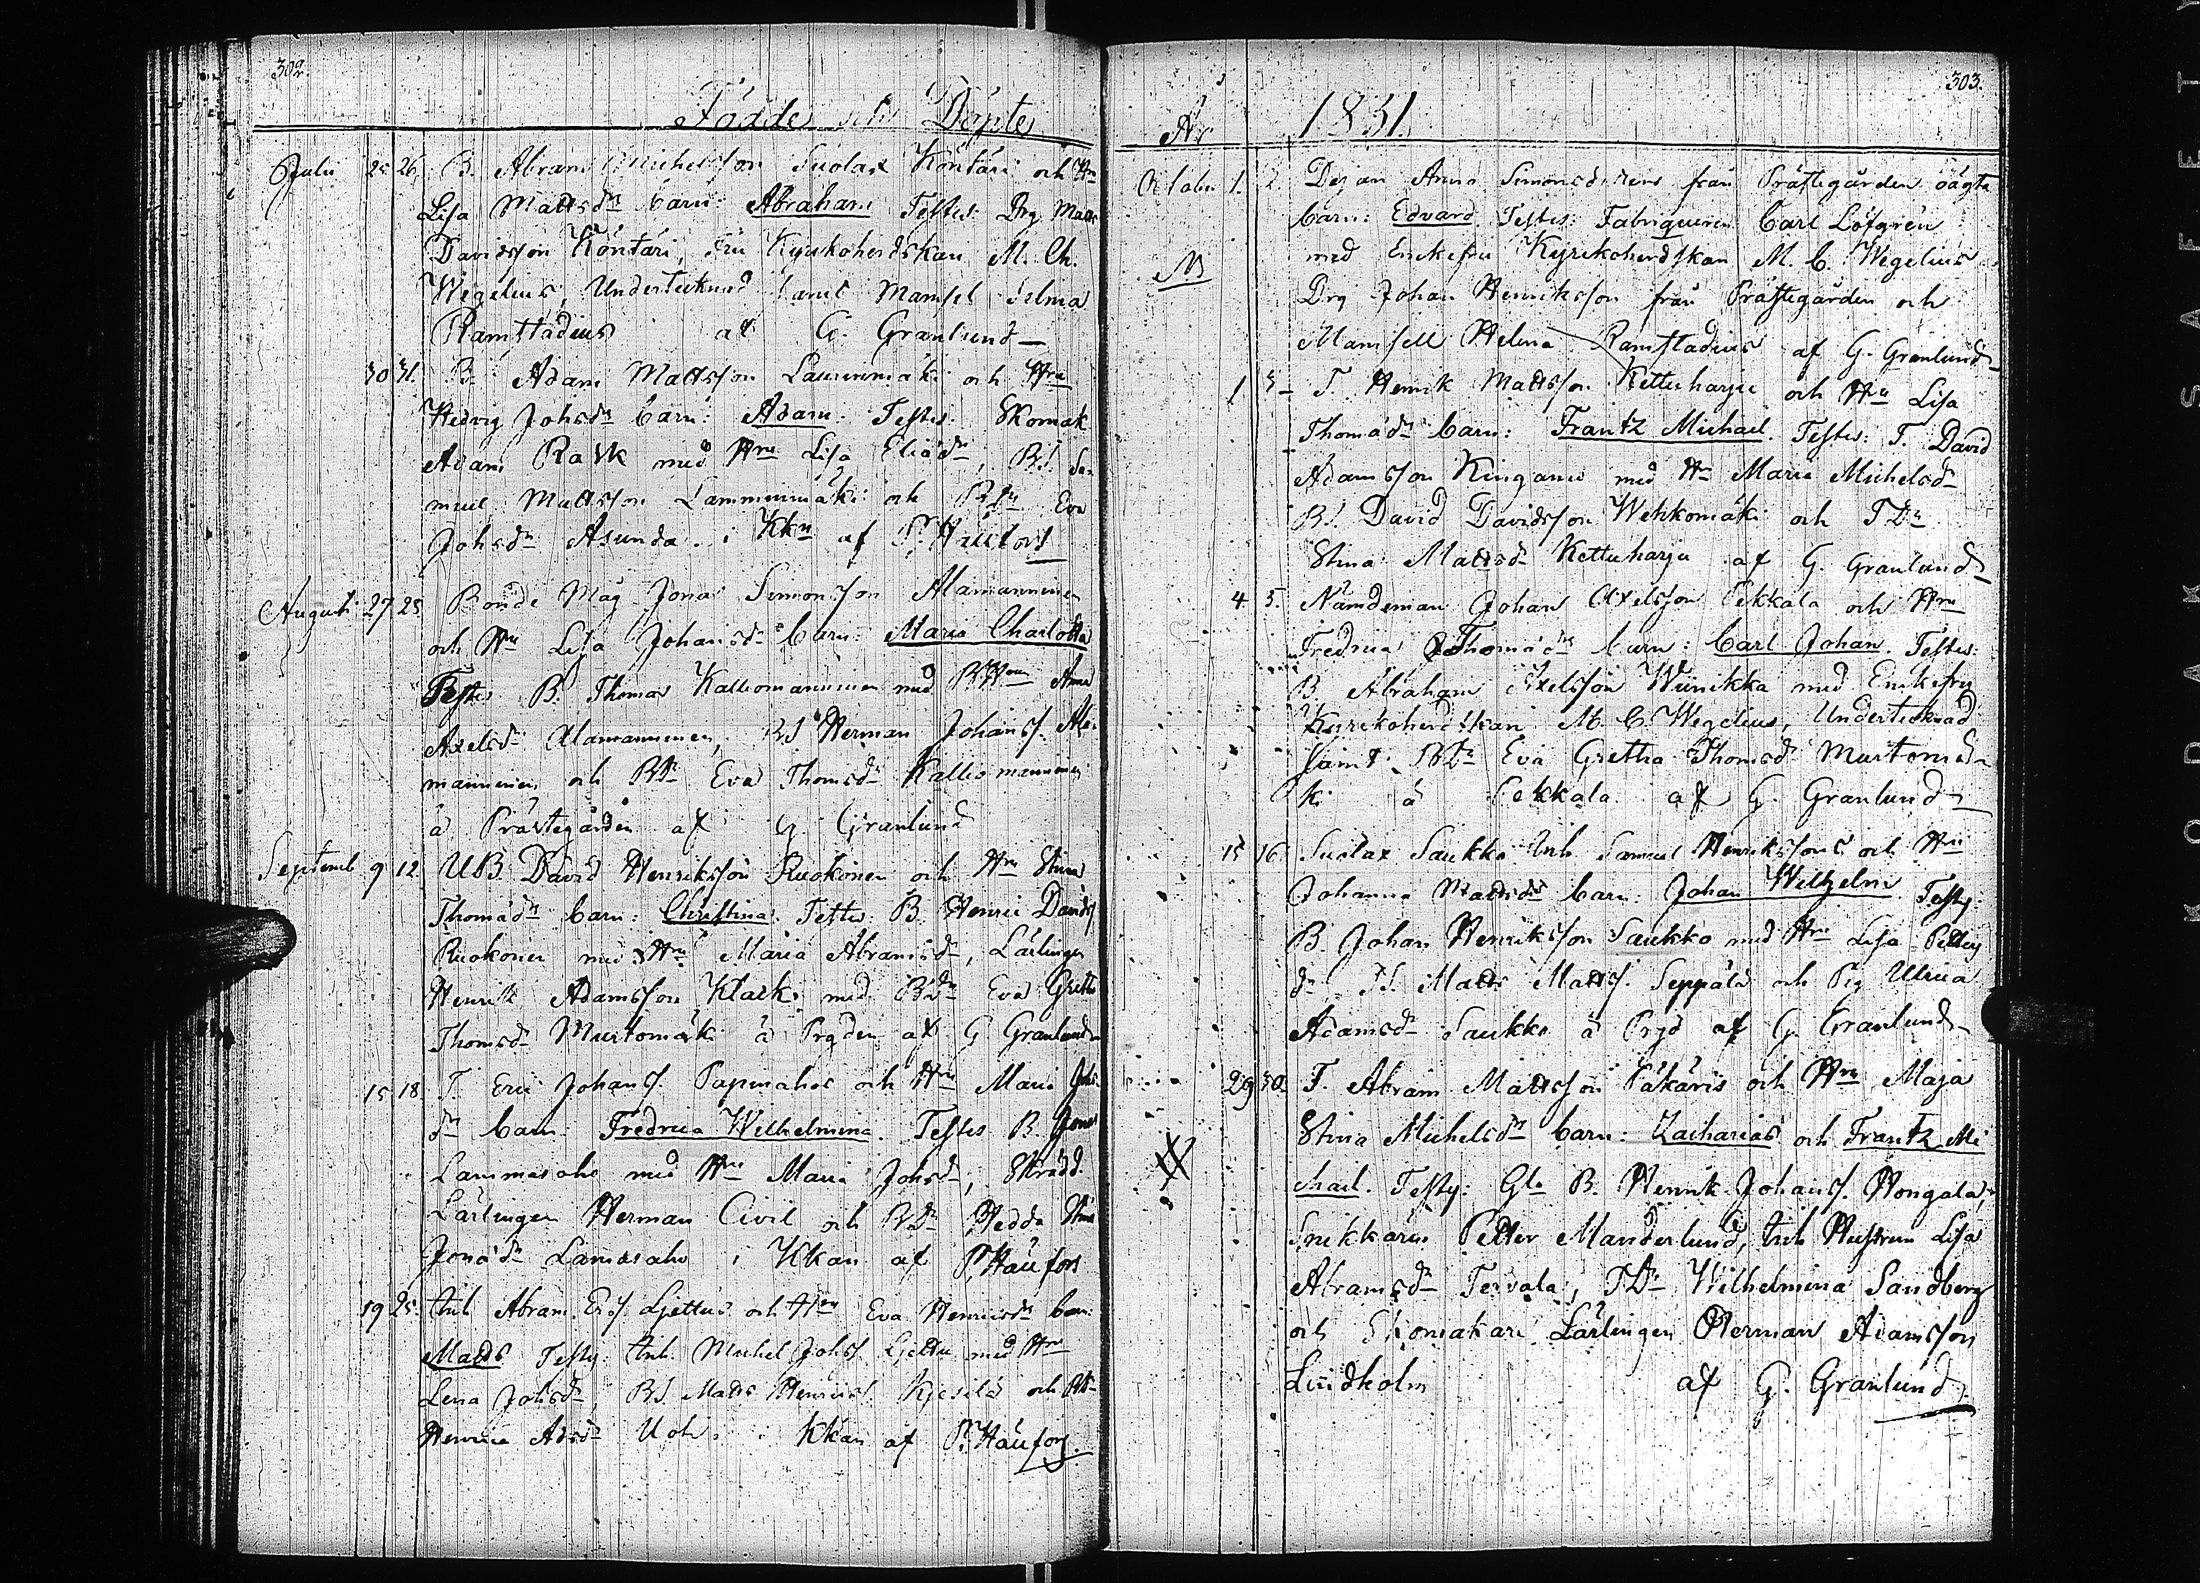 302.
Födde och Döpte
Julii 25 26. B. Abram Michelsson Suolax Köntäri och Hru
Lisa Mattsdr barn: Abraham Testes: Drg Matts
Davidsson Köntäri, Fru Kyrkoherdskan M. Ch.
Wegelius, Undertecknad samt Mamsel Helma
Ramstadius af G. Granlund
30 31. B. Adam Mattsson Lammimäki och Hru
Hedvig Johsdr barn: Adam. Testes: Skomak
Adam Rask med Hru Lisa Eliädr, BS. Sa
muel Mattsson Lammimäki och BDr Eva
Johsdr Asunda. i Kkn af P. Häufors
Augusti 27 28 Bonde Mag Jonas Simonsson Alamanninen
och Hru Lisa Johansdr barn: Maria Charlotta
Testes B. Thomas Kalliomanninen med BHru Anna
Axelsdr Alamanninen, BS Herman Johanss. Ala
manninen och BDr Eva Thomsdr Kalliomanninen
å Prästegården af G. Granlund
Septemb 9 12. UB. David Henriksson Ruokonen och Hru Stina
Thomädr barn: Christina. Testes: B. Henric Davids
Ruokonen med Hru Maria Abramsdr, Lärlingen
Henrik Adamsson Klack med BDr Eva Gretha
Thomsdr Murtomäki å Prgden af G Granlund
15 18. T. Eric Johanss. Papinaho och Hru Maria Johs
dr barn: Fredrica Wilhelmina. Testes B. Jonas
Lammasaho med Hru Maria Johsdr, Skrädd.
Lärlingen Herman Civil och BDr Hedda Stina
Jonädr Lamasaho i Kkan af P. Häufors
19 25. Inh Abram Ers. Ljettus och Hru Eva Henricsdr barn:
Matts Testes: Inh. Michel Johss. Ljettu med Hru
Lena Johsdr, BS. Matts Henricss. Kjesilä och
Henrica Absdr i Kkan af P. Häufors.
303.
År 1831.
October 1. 2. Dejan Anna Simonsdotters från Prästegården oägta
barn: Edvard. Testes: Fabriqueuren Carl Löfgren
med Enkefru Kyrkoherdskan M. C. Wegelius
Drg Johan Henriksson från Prästegården och
Mamsell Helena Ramstadius af G. Granlund
1 3 T. Henrik Mattsson Kettuharju och Hru Lisa
Thomädr barn: Frantz Michail. Testes: T. David
Adamsson Kinganen med Hru Maria Michelsdr
BS. David Davidsson Wehkomäki och TDr
Stina Mattsdr Kettuharju af G. Granlund
4. 5. Nämdeman Johan Axelsson Pekkala och Hru
Fredrica Thomädr barn: Carl Johan. Testes:
B. Abraham Axelsson Wiinikka med Enkefru
Kyrkoherdskan M. C. Wegelius, Undertecknad
samt BDr Eva Gretha Thomsdr Murtomä
ki å Pekkala af G. Granlund
15 16 Suolax Saukko Inh Samuel Henrikssons och Hru
Johanna Mattsdr barn: Johan Wilhelm. Testes:
B. Johan Henriksson Saukko med Hru Lisa Petters
dr TS. Matts Matts. Seppälä och Pig Ulrica
Adamsdr Saukko å Prgd af G. Granlund
29 30. T. Abram Mattsson Päkäris och Hru Maja
Stina Michelsdr barn: Zacharias och Frantz Mi
chail. Testes: Gla B. Henrik Johanss. Hongala,
Snikkaren Petter Manderlund, Inh Hustrun Lisa
Abramsdr Tervala, TDr Wilhelmina Sandberg
och Skomakare Lärlingen Herman Adamsson
Lindholm af G. Granlund
KODAK SAFETY